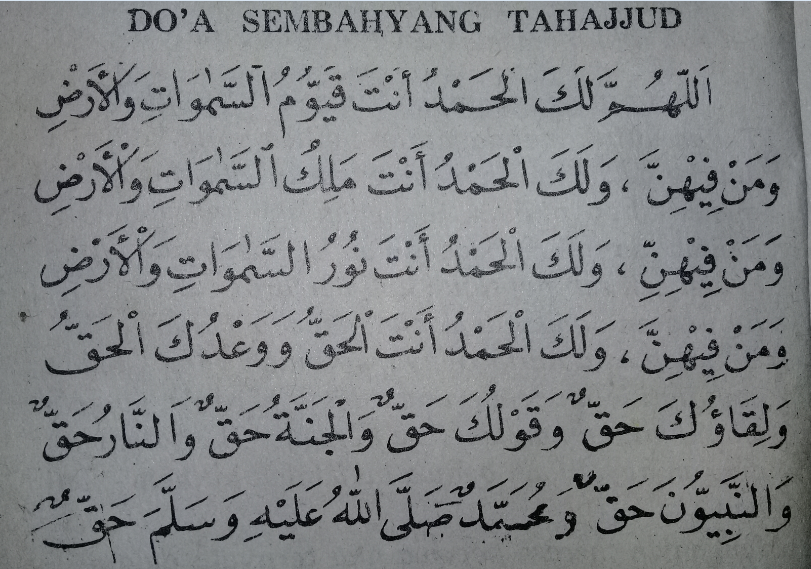 DO'A SEMBAHYANG TAHAJJUD
اَللّٰهُمَّ لَكَ الْحَمْدُ أَنْتَ قَيُّوْمُ السَّمٰوَاتِ وَالْأَرْضِ
وَمَنْ فِيْهِنَّ ، وَلَكَ الْحَمْدُ أَنْتَ مَلِكُ السَّمٰوَاتِ وَالْأَرْضِ
وَمَنْ فِيْهِنِّ ، وَلَكَ الْحَمْدُ أَنْتَ نُوْرُ السَّمٰوَاتِ وَالْأَرْضِ
وَمَنْ فِيْهِنَّ ، وَلَكَ الْحَمْدُ أَنْتَ الْحَقُّ وَوَعْدُكَ الْحَقُّ
وَلِقَاؤُكَ حَقٌّ وَقَوْلُكَ حَقٌّ وَالْجَنَّةُ حَقٌّ وَالنَّارُ حَقٌّ
وَالنَّبِيُّوْنَ حَقٌّ وَمُحَمَّدٌ صَلَّى اللّٰهُ عَلَيْهِ وَسَلَّمَ حَقٌّ